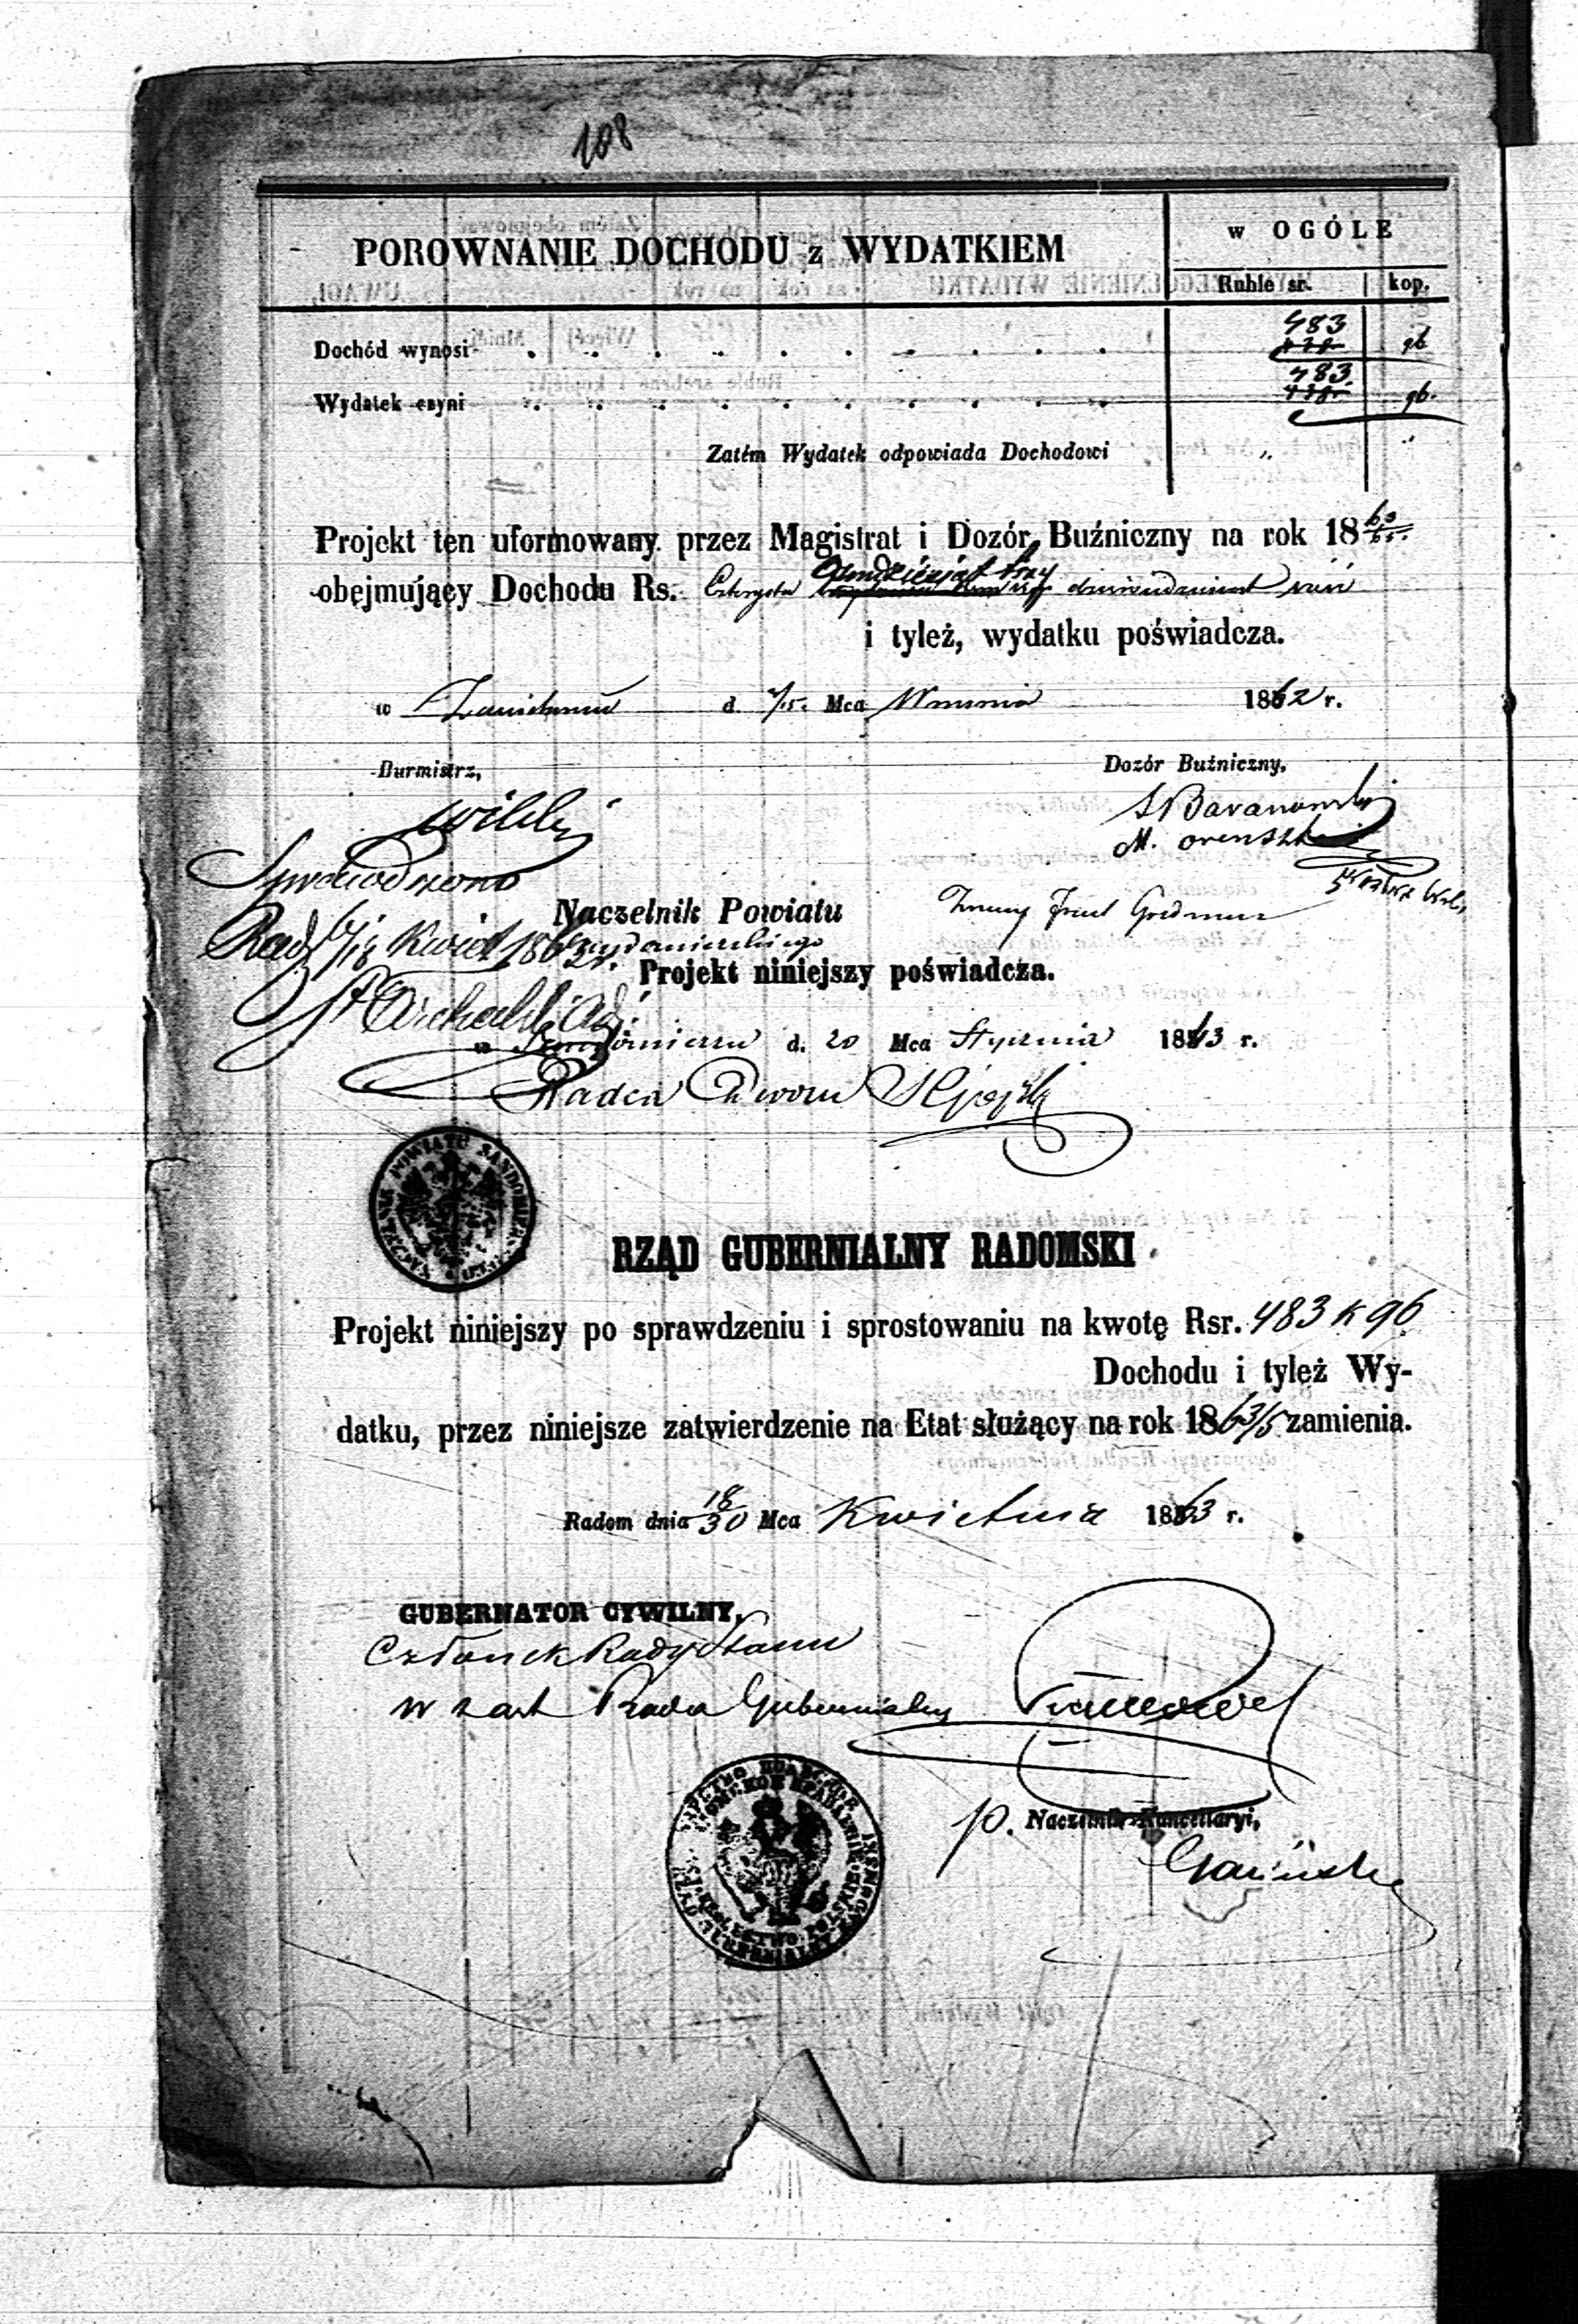 108
POROWNANIE DOCHODU z WYDATKIEM
w OGÓLE
Ruble sr. kop.
Dochód wynosi 483 96
Wydatek czyni 483. 96.
Zatém Wydatek odpowiada Dochodowi " "
Projekt ten uformowany przez Magistrat i Dozór Buźniczny na rok 1863/5
obejmujący Dochodu Rs. Czterysta Osmdziesiąt trzy dziewiędziesiąt sześć
i tyleż, wydatku poświadcza.
w Zawichoście d. 3/15 Mca Września 1862 r.
Burmistrz,
Dozór Buźniczny,
S Baranowski
M. Orensztein
Sprawdzono
Naczelnik Powiatu
Rad. 6/18 Kwiet 1863 r.
Sandomierskiego
Projekt niniejszy poświadcza.
w Sandomierzu d. 20 Mca Stycznia 1863 r.
Radca Dworu
NACZELNIK POWIATU SANDOMIERS
RZĄD GUBERNIALNY RADOMSKI
Projekt niniejszy po sprawdzeniu i sprostowaniu na kwotę Rsr. 483 k 96
Dochodu i tyleż Wy-
datku, przez niniejsze zatwierdzenie na Etat służący na rok 1863/5 zamienia.
Radom dnia 18/30 Mca Kwietnia 1863 r.
GUBERNATOR CYWILNY,
Członek Rady Stanu
w zast Radca Gubernialny
p. Naczelnik Kancellaryi,